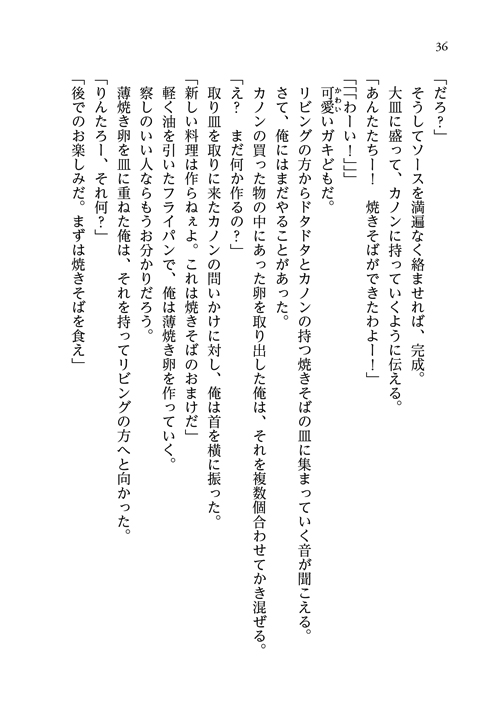 36
「だろ？」
そうしてソースを満遍なく絡ませれば、完成。
大皿に盛って、カノンに持っていくように伝える。
「あんたたちー！　焼きそばができたわよー！」
「「「わーい！」」」
可愛いガキどもだ。
かわい
リビングの方からドタドタとカノンの持つ焼きそばの皿に集まっていく音が聞こえる。
さて、俺にはまだやることがあった。
カノンの買った物の中にあった卵を取り出した俺は、それを複数個合わせてかき混ぜる。
「え？　まだ何か作るの？」
取り皿を取りに来たカノンの問いかけに対し、俺は首を横に振った。
「新しい料理は作らねぇよ。これは焼きそばのおまけだ」
軽く油を引いたフライパンで、俺は薄焼き卵を作っていく。
察しのいい人ならもうお分かりだろう。
薄焼き卵を皿に重ねた俺は、それを持ってリビングの方へと向かった。
「りんたろー、それ何？」
「後でのお楽しみだ。まずは焼きそばを食え」